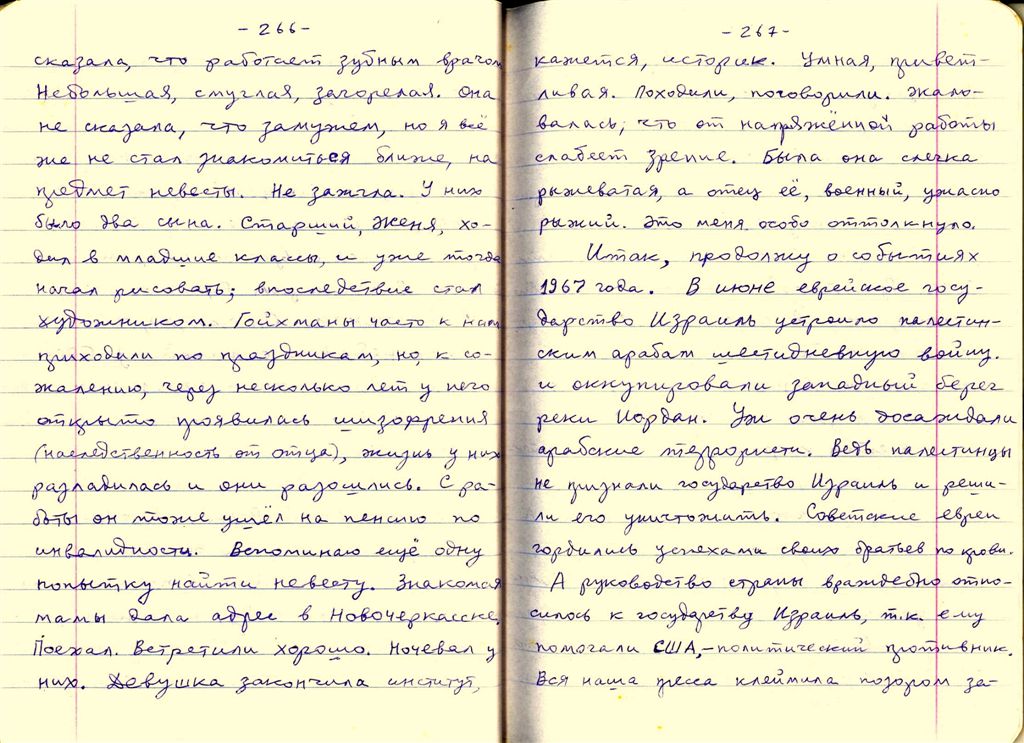 - 266 -
сказала, что работает зубным врачом
Небольшая, смуглая, загорелая. Она
не сказала, что замужем, но я всё
же не стал знакомиться ближе, на
предмет невесты. Не зажгла. У них
было два сына. Старший, Женя, хо-
дил в младшие классы, и уже тогда
начал рисовать; впоследствие стал
художником. Гойхманы часто к нам
приходили по праздникам, но, к со-
жалению, через несколько лет у него
открыто проявилась шизофрения
(наследственность от отца), жизнь у них
разладилась и они разошлись. С ра-
боты он тоже ушёл на пенсию по
инвалидности. Вспоминаю ещё одну
попытку найти невесту. Знакомая
мамы дала адрес в Новочеркасске.
Поехал. Встретили хорошо. Ночевал у
них. Девушка закончила институт,
- 267 -
кажется, историк. Умная, привет-
ливая. Походили, поговорили. Жало-
валась, что от напряжённой работы
слабеет зрение. Была она слегка
рыжеватая, а отец её, военный, ужасно
рыжий. Это меня особо оттолкнуло.
Итак, продолжу о событиях
1967 года. В июне еврейское госу-
дарство Израиль устроило палестин-
ским арабам шестидневную войну.
и оккупировали западный берег
реки Иордан. Уж очень досаждали
арабские террористы. Ведь палестинцы
не признали государство Израиль и реши-
ли его уничтожить. Советские евреи
гордились успехами своих братьев по крови.
А руководство страны враждебно отно-
силось к государству Израиль, т.к. ему
помогали США,-политический противник.
Вся наша пресса клеймила позором за-